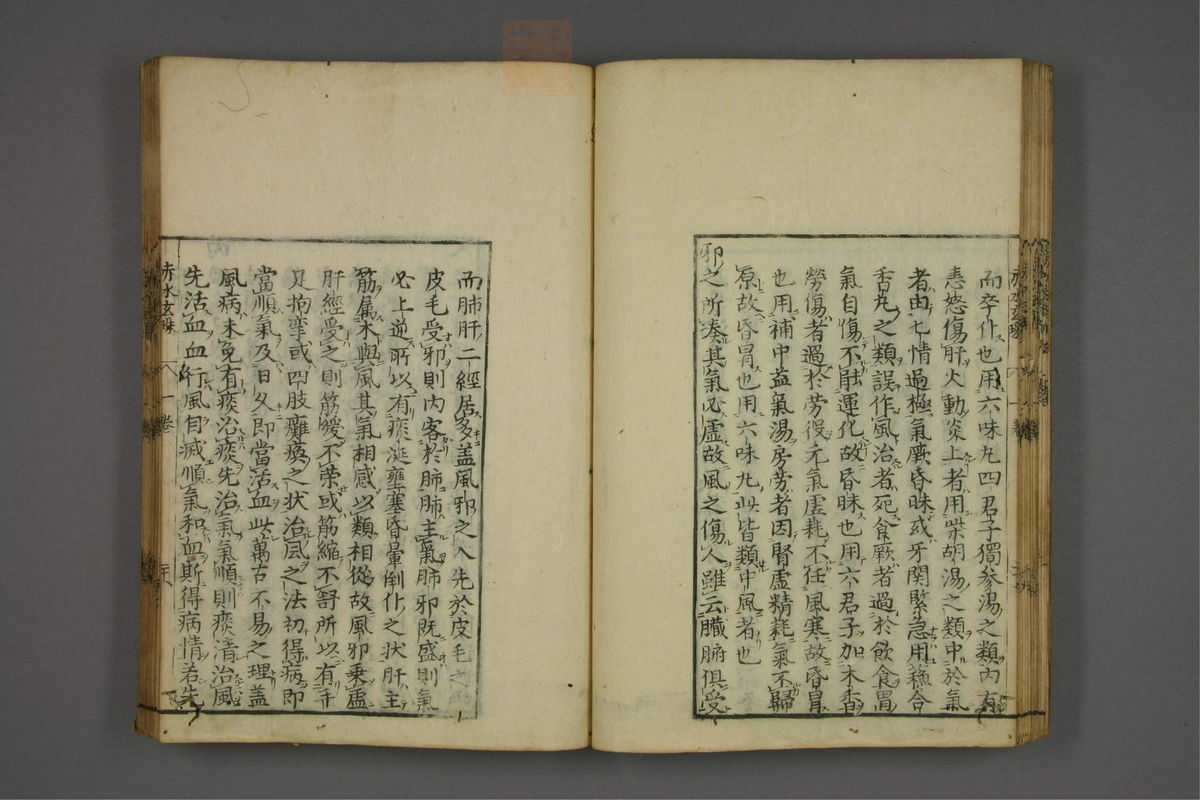 而卒仆也用六味丸四君子獨參湯之類內有
恚怒傷肝火動炎上者用柴胡湯之類中於氣
者由七情過極氣厥昏昧或牙關緊急用蘓合
香丸之類誤作風治者死食厥者過於飲食胃
氣自傷不能運化故昏昧也用六君子加木香
勞傷者過於勞役元氣虛耗不任風寒故昏冒
也用補中益氣湯房勞者因腎虛精耗氣不歸
原故昏冒也用六味丸此皆類中風者也
邪之所湊其氣必虛故風之傷人雖云臟腑俱受
而肺肝二經居多盖風邪之入先於皮毛之
皮毛受邪則內客於肺肺主氣肺邪既盛則氣
必上逆所以有痰涎壅塞昏暈倒仆之狀肝主
筋属木與風其氣相感以類相從故風邪乗虛
肝經受之則筋緩不荣或筋縮不舒所以有手
足拘攣或四肢癱瘓之状治風之法初得病即
當順氣及日乆即當活血此萬古不易之理盖
風病未免有痰治痰先治氣氣順則痰清治風
先活血血行風自滅順氣和血斯得病情若先
赤水玄珠
一卷